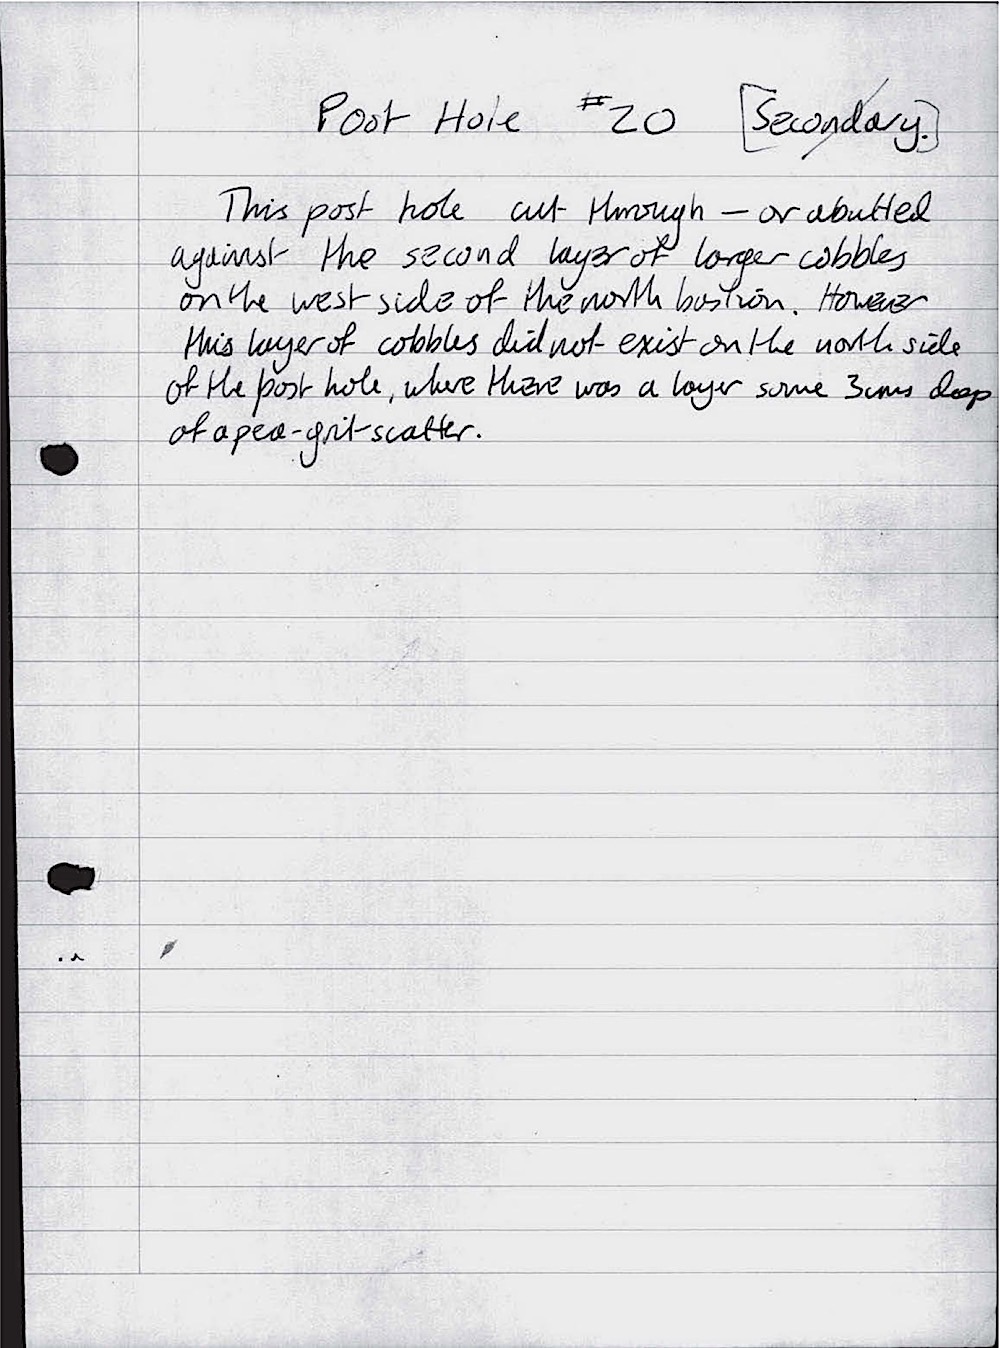 Post Hole #20 [Secondary.]
This post hole cut through — or abutted
against the second layer of larger cobbles
on the west side of the north bastion. However
this layer of cobbles did not exist on the north side
of the post hole, where there was a layer some 3cms deep
of a pea-grit scatter.